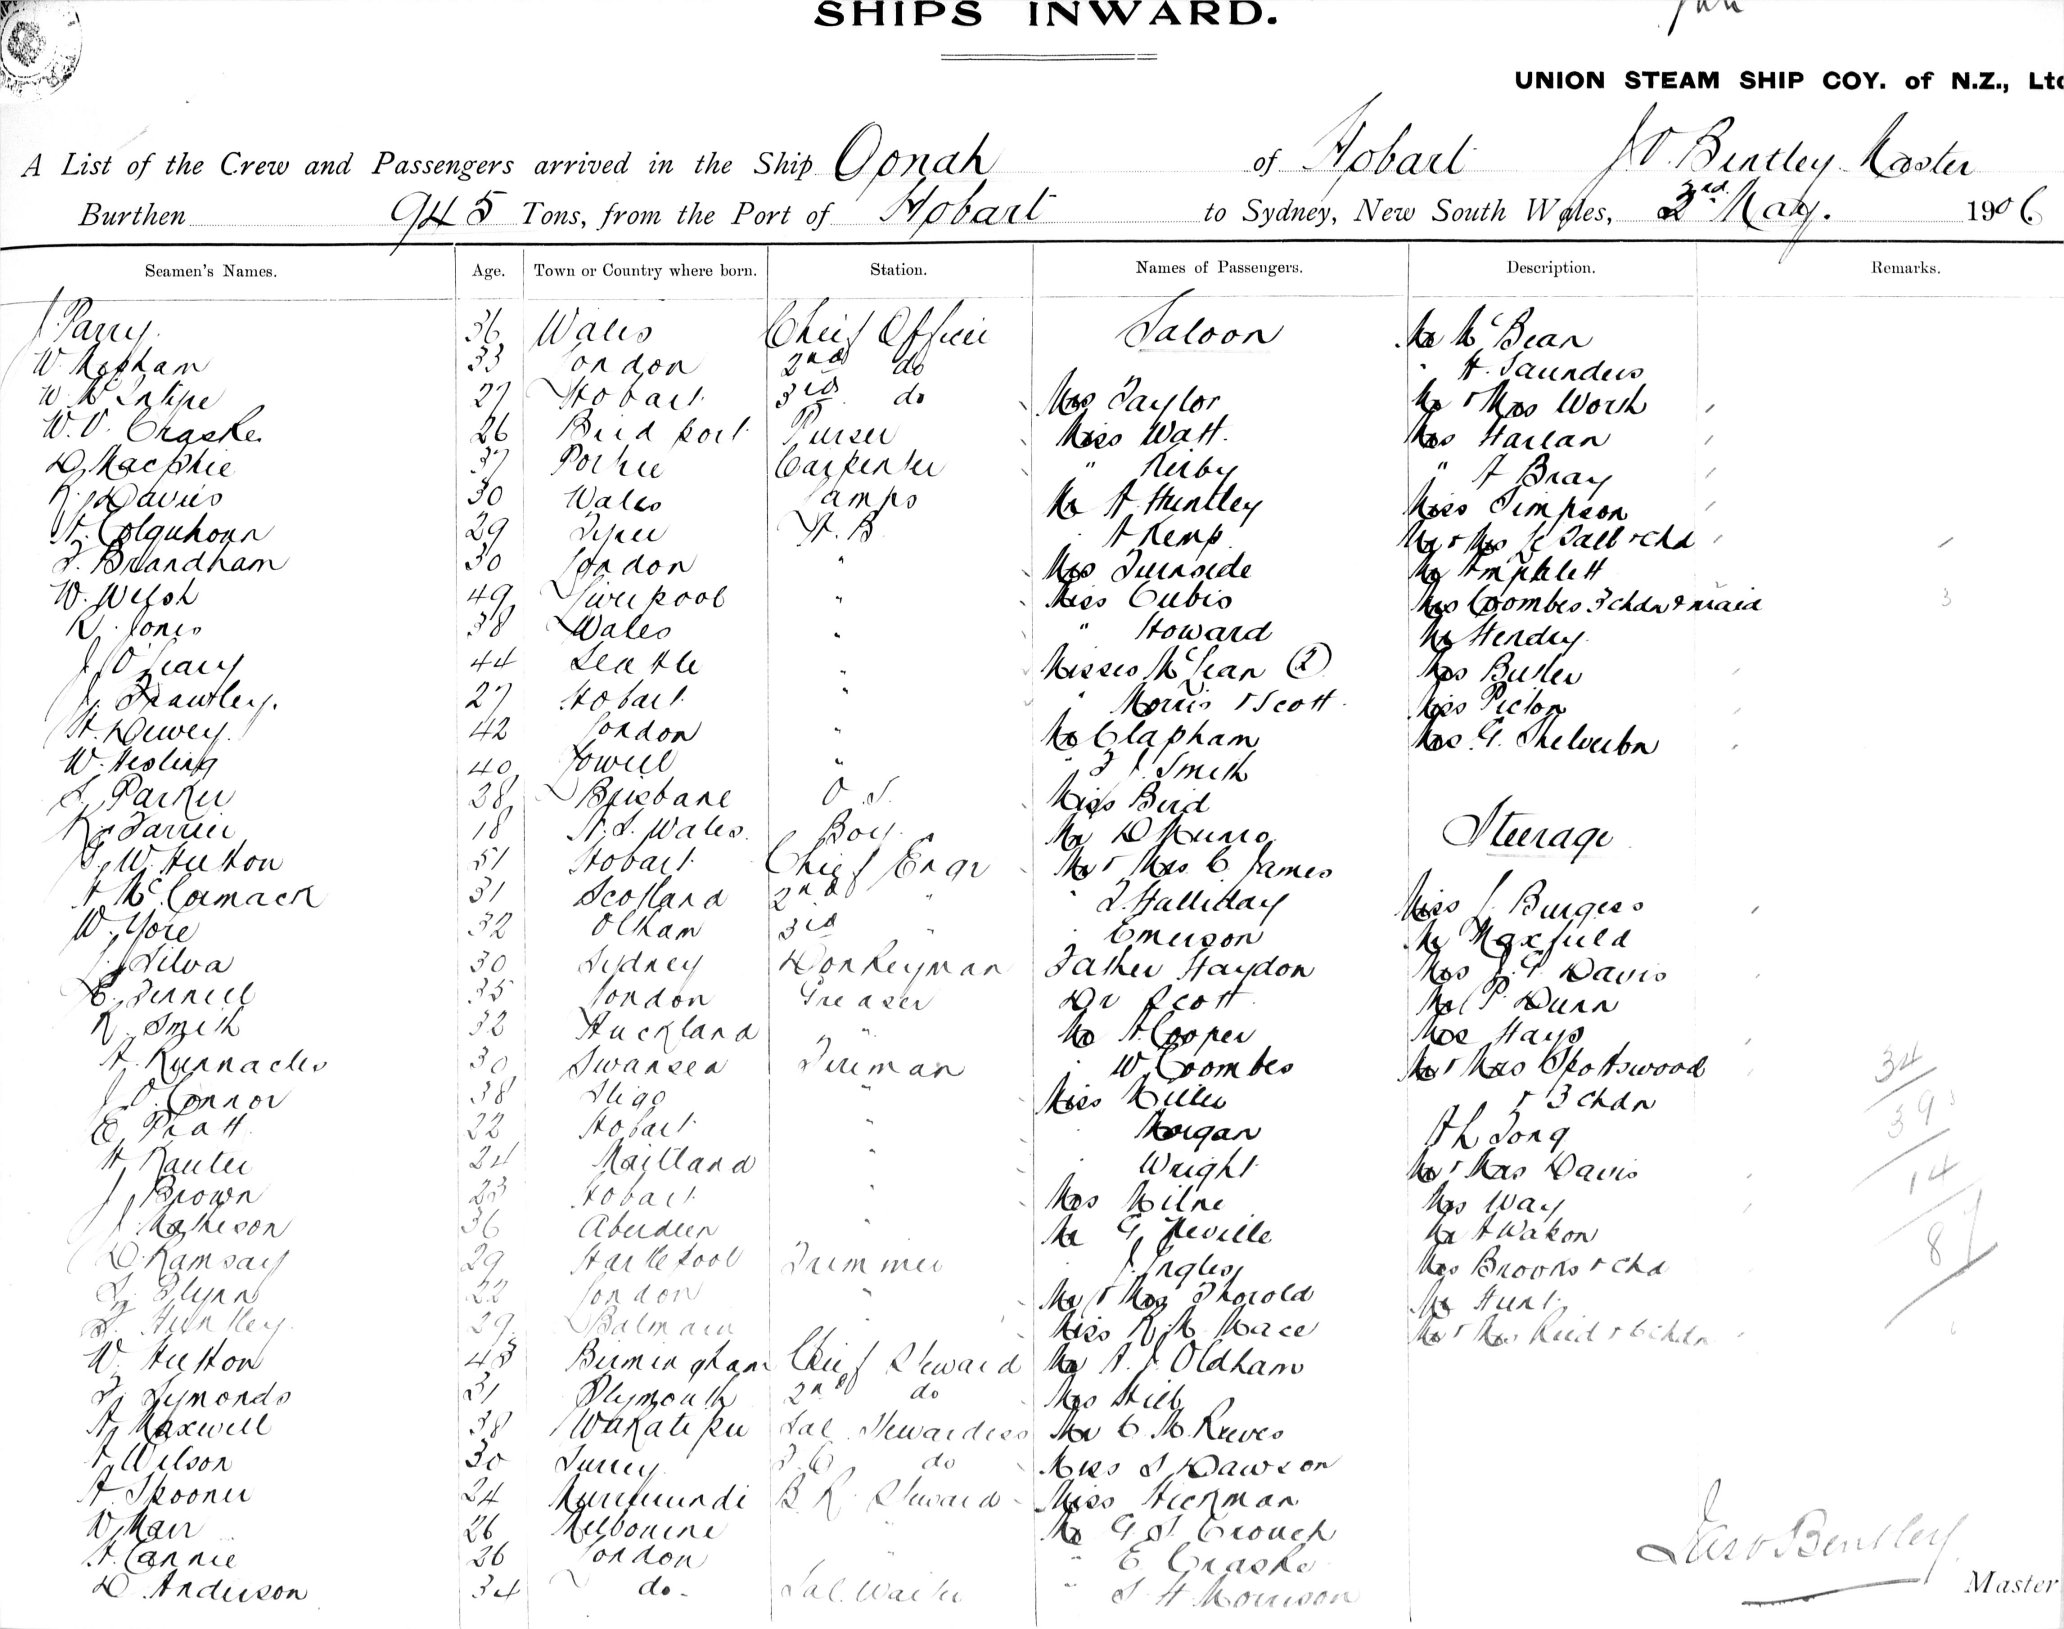 SHIPS INWARD.
UNION STEAM SHIP COY. of N.Z., Ltd
A List of the Crew and Passengers arrived in the Ship Oonah of Hobart J.V. Bentley Master
Burthen 945 Tons, from the Port of Hobart to Sydney, New South Wales, 3rd May. 1906
Seamen's Names. Age. Town or Country where born. Station. Names of Passengers. Description. Remarks.
J Parry. 36 Wales Cheif Officer Saloon Mr McBean
W. Mepham 33 London 2nd do " H. Saunders
W McIntyre 27 Hobart 3rd do Mrs Taylor Mr & Mrs Worth
W.V. Craske 26 Birdport Purser Miss Watt. Mrs Harlan
D. MacPhie 37 Carpenter " Kirby " A Bray
R. Davies 30 Wales Lamps Mr A. Huntley Miss Simpson
H. Colquhoun 29 A. B. " A Kemp Mr & Mrs & chd
F. Brandham 30 London " Mrs Burnside Mr Amphlett
W. Welsh 49 Liverpool " Miss Cubis Mrs Coombes 3 chdn & maid
R. Jones 38 Wales " " Howard Mr Hendry
J. O'Leary 44 Seattle " Misses McLean (2) Mrs Butler
J. Frawley. 27 Hobart " " Morris & Scott Miss Picton
H. Dewey. 42 London " Mr Clapham Mrs G. Shelverton
W. Hesling 40 " " Smith
S. Parker 28 Brisbane O S. Miss Bird
R. Farrier 18 N.S. Wales. Boy. Mr D Munro Steerage
W. Hutton 51 Hobart Chief Engr Mr & Mrs C. James
A McCormack 31 Scotland 2nd " " T. Halliday Miss J. Burgess
W. Yore 32 Olham 3rd " " Emerson Mr Maxfield
J. Silva 30 Sydney Donkeyman Father Haydon Mrs J. G. Davis
E. Ferrell 35 London Greaser Dr Scott Mr P. Dunn
R. Smith 32 Auckland " Mr A. Cooper Mrs Hays
A. Runnacles 30 Swansea Fireman " W. Coombes Mr & Mrs Spotswood
J. O'Connor 38 Sligo " Miss Miller & 3 chdn
E. Pratt 22 Hobart " " Morgan Ah Tong
H. Rauter 24 Maitland " " Wright Mr & Mrs Davis
J. Brown 23 Hobart " Mrs Milne Mrs Way
J. Matheson 36 Aberdeen " Mr G. Neville Mr A Walton
D. Ramsay 29 Hartlepool Trimmer " J. Ingles Mrs Brooks & chd
Flynn 22 London " Mr & Mrs Thorold Mr Hunt
Huntley. 29 Balmain " Miss R. M. Mace Mr & Mrs Reid & 6 chdn
W. Hutton 43 Birmingham Chief Steward Mr A. J. Oldham
F. Symonds 31 Plymouth 2nd do Mrs Hill
A. Maxwell 38 Wakatipu Sal. Stewardess Mr C. M. Reeves
A. Wilson 30 Surrey do Miss S Dawson
A. Spooner 24 Murrurundi B. R. Steward Miss Hickman
W. Marr 26 Melbourne " Mr G. S. Crouch
A. Cannie 26 London " " E. Craske
D. Anderson 34 do. Sal. Waiter " S. H. Morrison
3
34
39
14
8
Bentley
Master